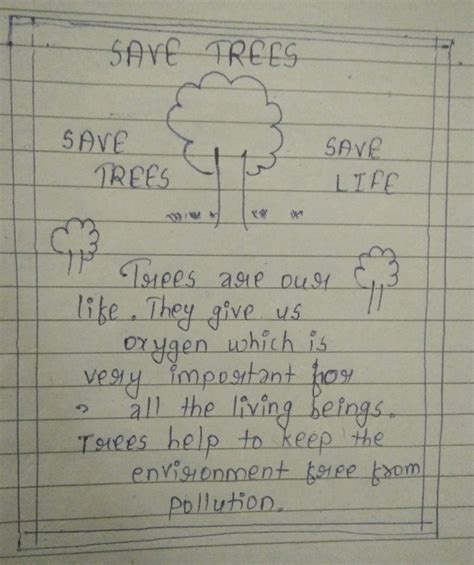 SAVE TREES
SAVE
TREES
SAVE
LIFE
Trees are our
life. They give us
oxygen which is
very important for
all the living beings.
Trees help to keep the
environment free from
pollution.